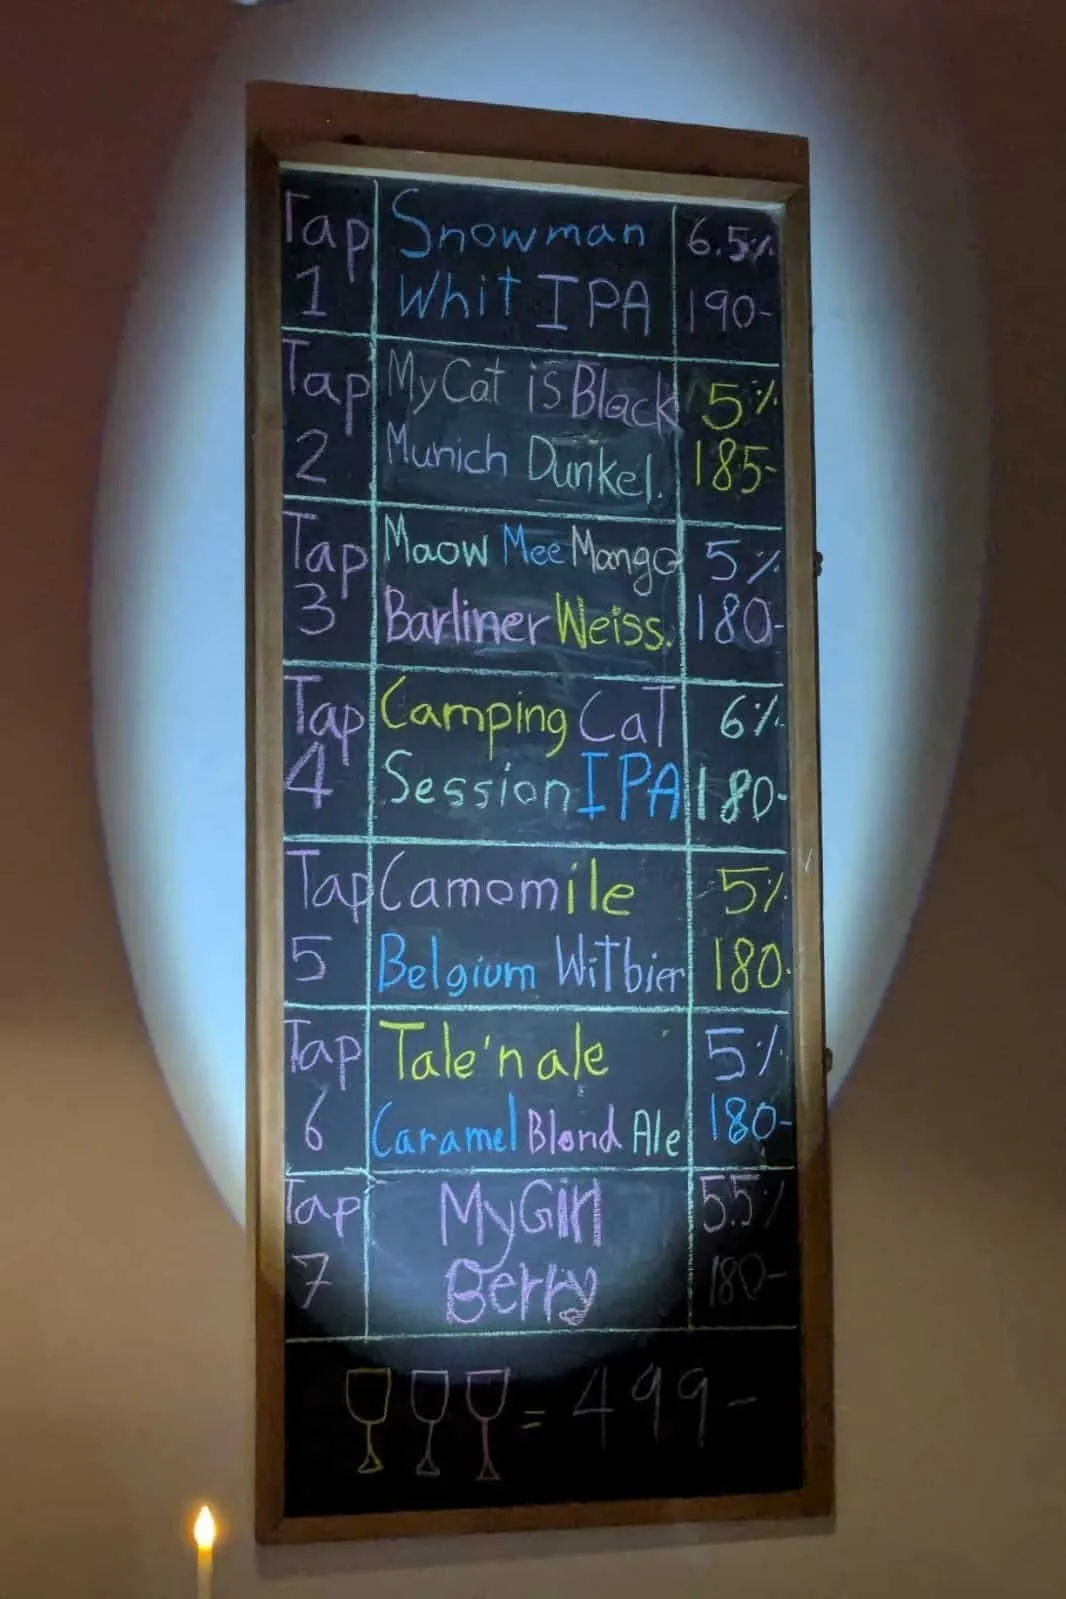 Tap 1 Snowman 6.5%
Whit IPA 190-
Tap 2 My Cat is Black 5%
Munich Dunkel. 185-
Tap 3 Maow Mee Mango 5%
Barliner Weiss. 180-
Tap 4 Camping Cat 6%
Session IPA 180-
Tap 5 Camomile 5%
Belgium Witbier 180-
Tap 6 Tale'n ale 5%
Caramel Blond Ale 180-
Tap 7 My Girl 5.5%
Berry 180-
= 499-